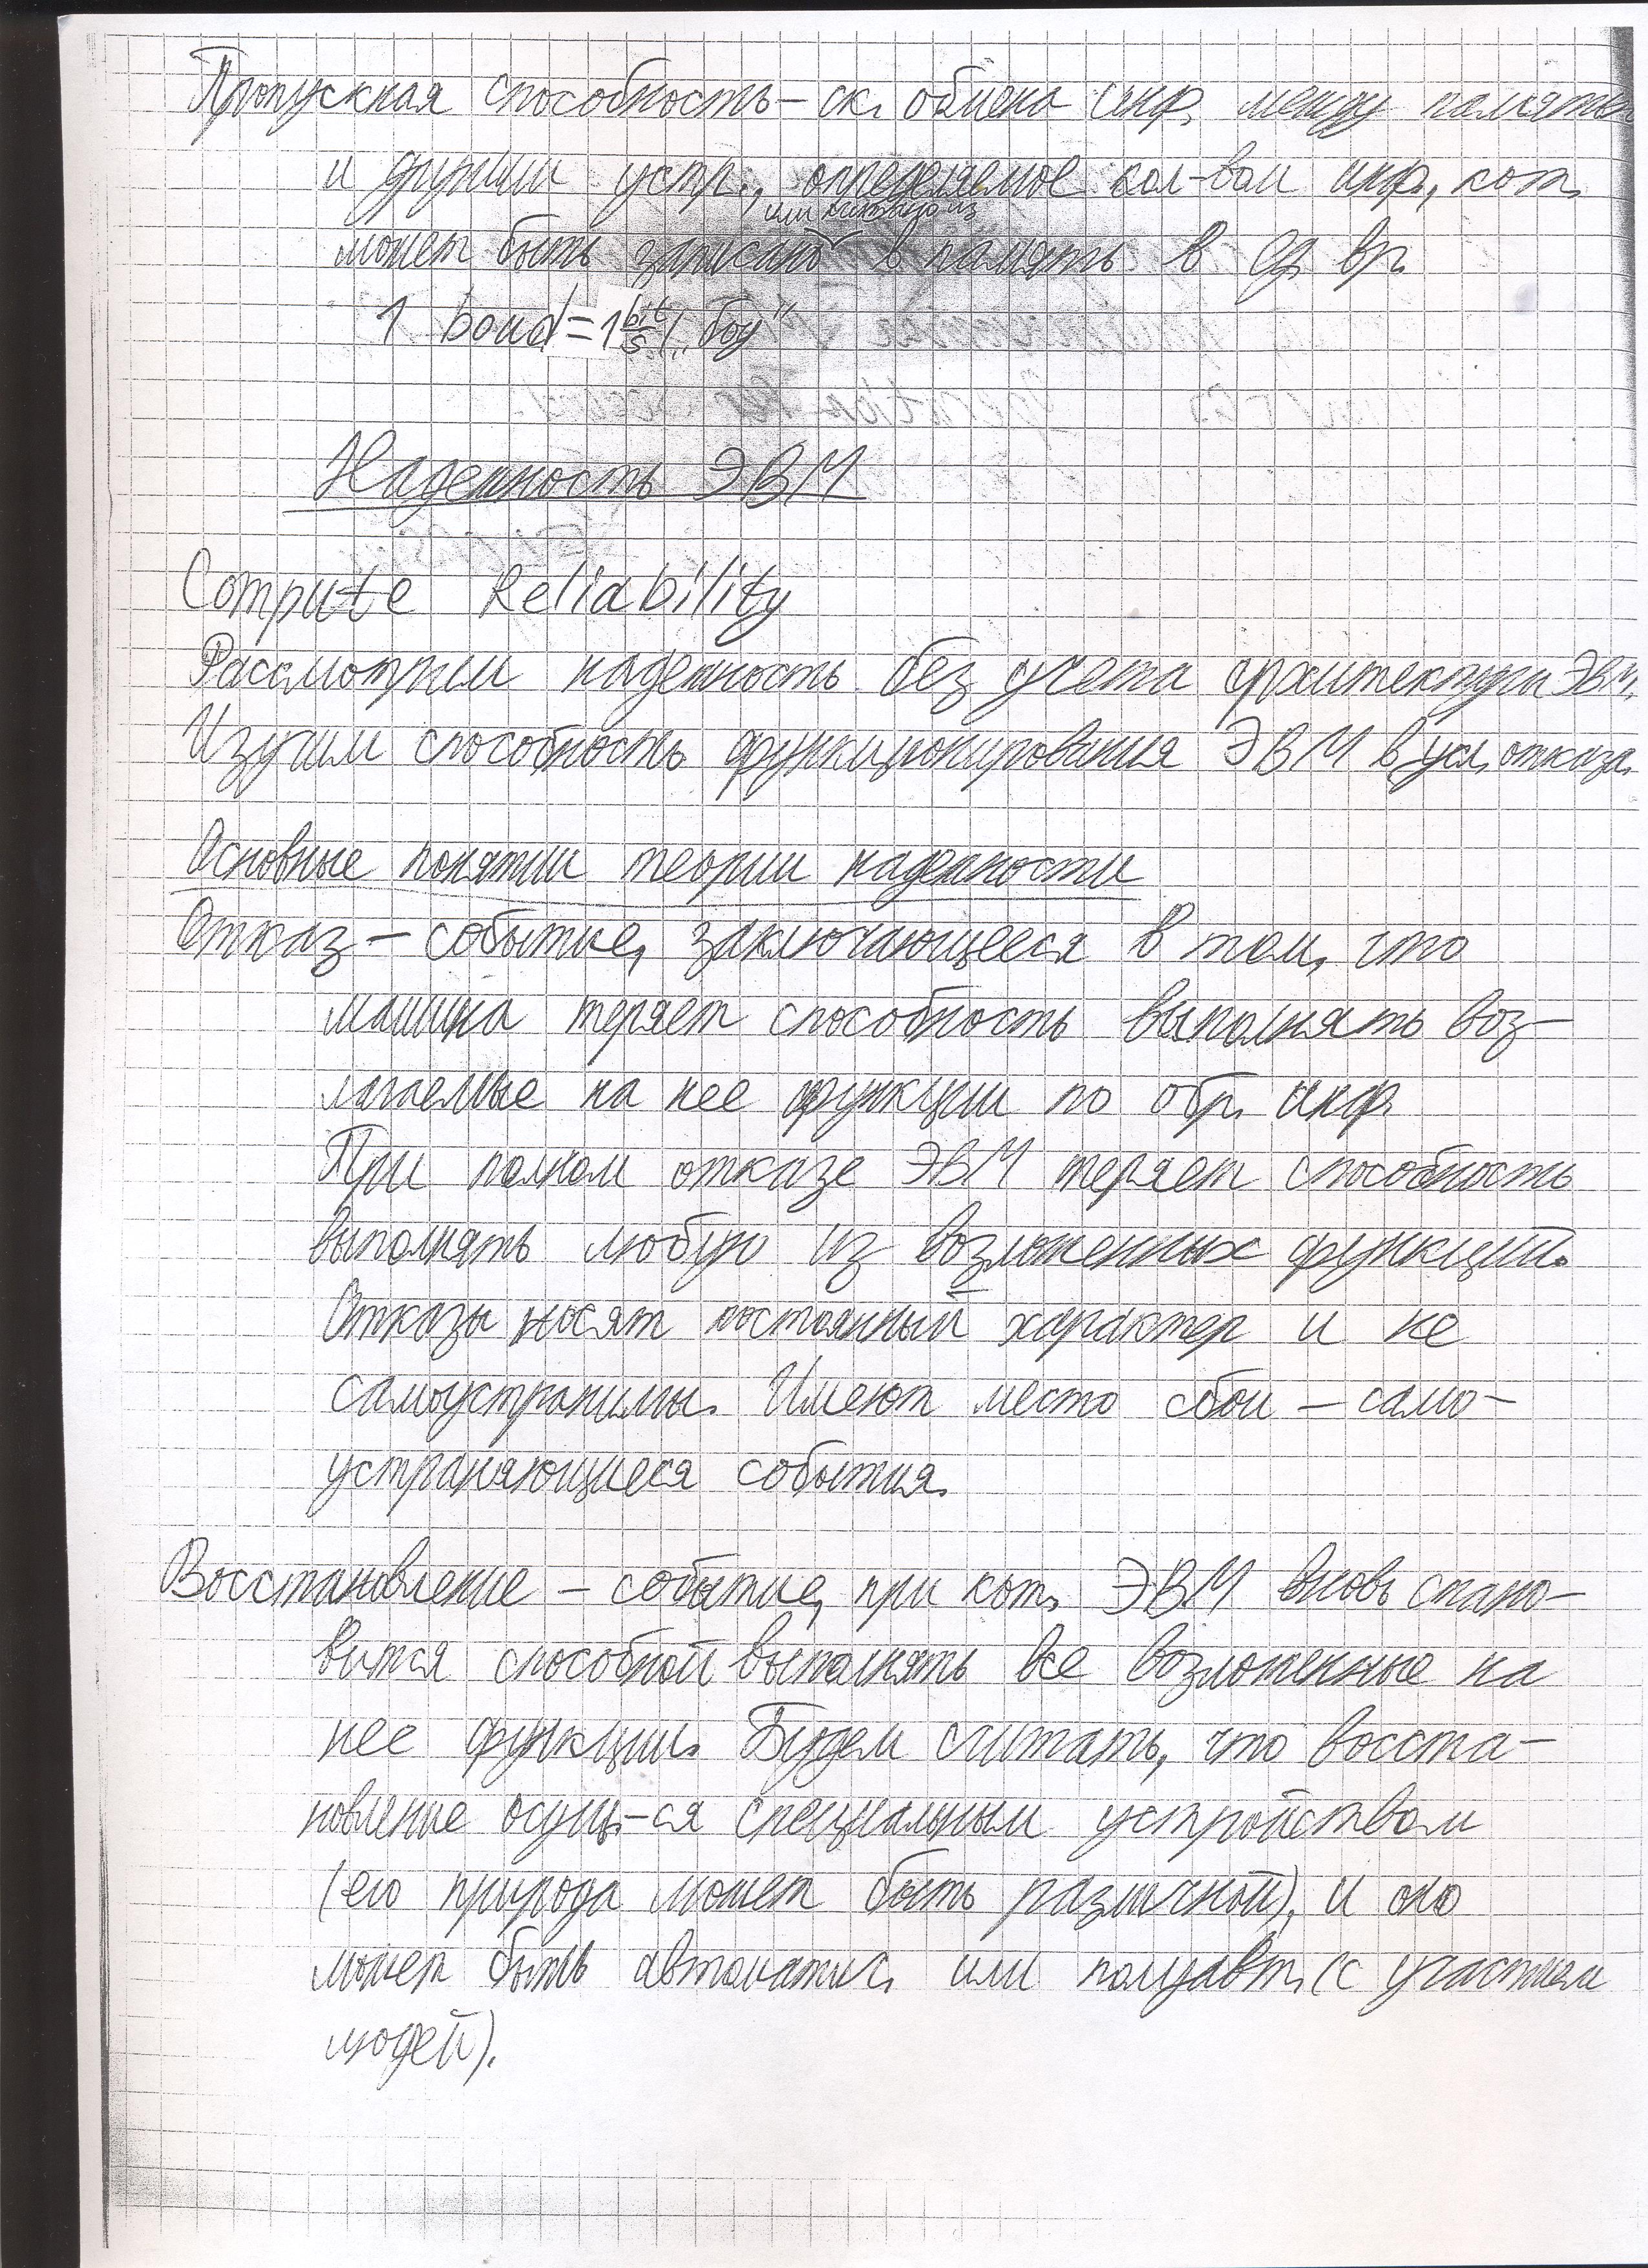 Пропускная способность – ск. обмена инф. между памятью
и другими устр., определяемое кол-вом инф., кот.
или считано из
может быть записано в память в ед. вр.
1 boud = 1 bit/s „боу“
Надежность ЭВМ
Compute Reliability
Рассмотрим надежность без учета архитектуры ЭВМ.
Изучим способность функционирования ЭВМ в усл. отказа.
Основные понятии теории надежности
Отказ – событие, заключающееся в том, что
машина теряет способность выполнять воз-
лагаемые на нее функции по обр. инф.
При полном отказе ЭВМ теряет способность
выполнять любую из возложенных функций.
Отказы носят постоянный характер и не
самоустранимы. Имеют место сбои – само-
устраняющиеся события.
Восстановление – событие, при кот. ЭВМ вновь стано-
вится способной выполнять все возложенные на
нее функции. Будем считать, что восста-
новление осущ-ся специальным устройством
(его природа может быть различной), и оно
может быть автоматич. или полуавт. (с участием
людей).